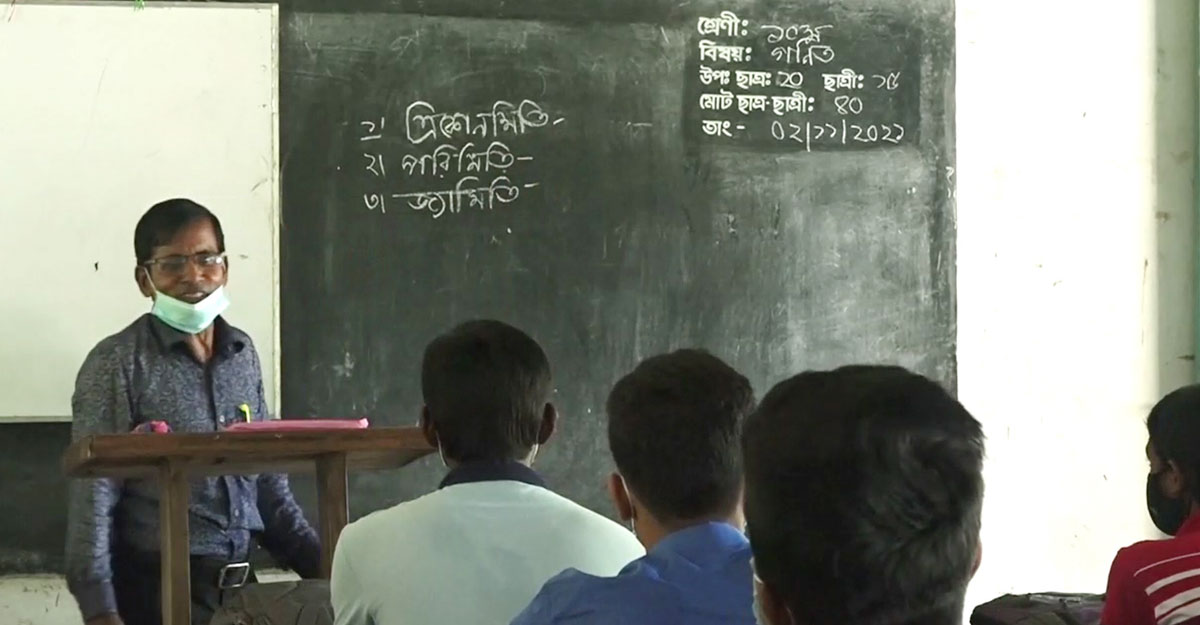 ১। ত্রিকোনমিতি-
২। পরিমিতি-
৩। জ্যামিতি-
শ্রেণী: ১০ম
বিষয়: গনিত
উপঃ ছাত্র: ২০ ছাত্রী: ১৫
মোট ছাত্র-ছাত্রী: ৪০
তাং - ০২/১১/২০২১